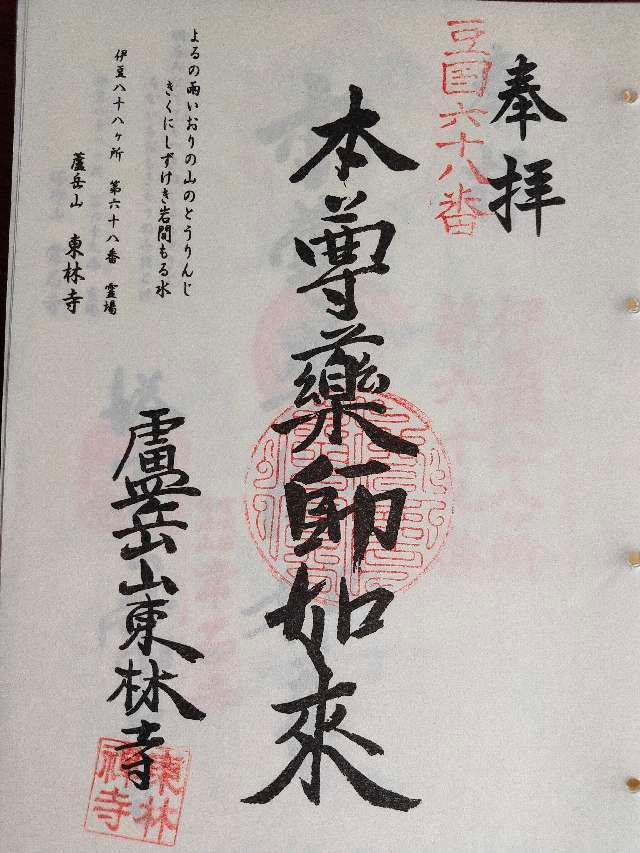 奉拝
豆国六十八番
本尊薬師如來
盧岳山東林寺
東林禅寺
よるの雨いおりの山のとうりんじ
きくにしずけき岩間もる水
伊豆八十八ヶ所 第六十八番 霊場
蘆岳山 東林寺